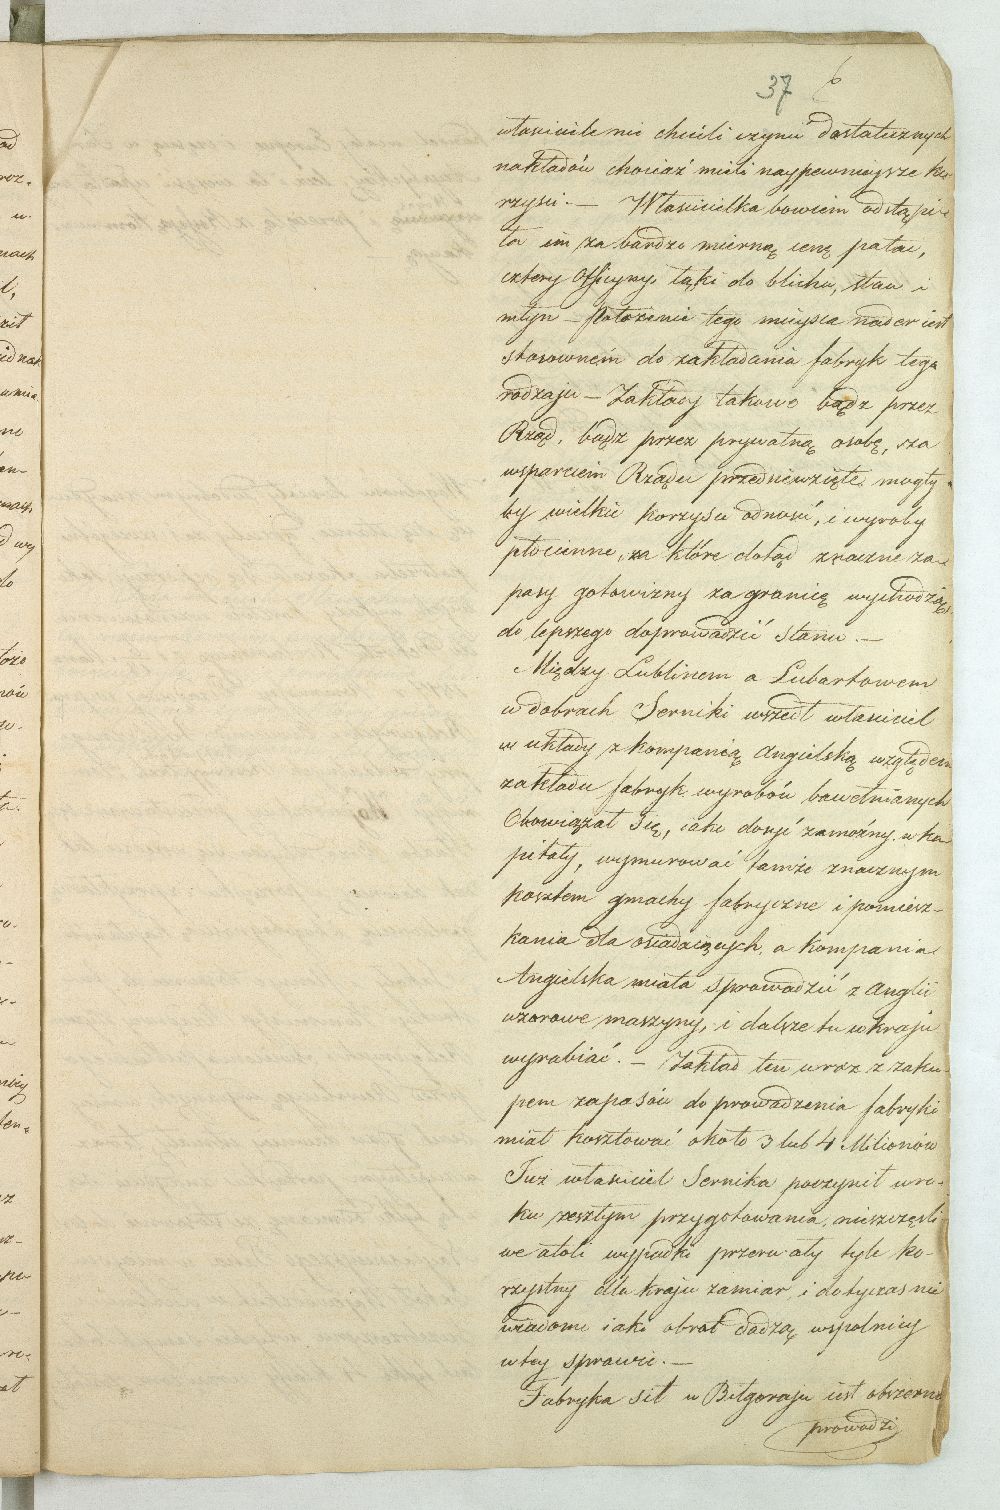 37 6
własciciele nie chcieli czynić dostatecznych
nakładów chociaż mieli naypewnieysze ko-
rzyści. — Właścicielka bowiem odstąpi-
ła im za bardzo mierną cenę pałac,
cztery Officyny, łąki do blichu, staw i
młyn — Położenie tego mieysca nader iest
stosownem do zakładania fabryk tego
rodzaju — Zakłady takowe bądz przez
Rząd, bądz przez prywatną osobę, za
wsparciem Rządu przedniewzięte mogły
by wielkie korzyści odnosić, i wyroby
płócienne, za które dotąd znaczne za-
pasy gotowizny za granicę wychodzą,
do lepszego doprowadzić stanu. —
Między Lublinem a Lubartowem
w dobrach Serniki wszedł właściciel
w układy z kompanią Angielską względem
zakładu fabryk wyrobów bawełnianych
Obowiązał się, iako dosyć zamożny w ka-
pitały, wymurować tamże znacznym
kosztem gmachy fabryczne i pomiesz-
kania dla osiadaiących, a kompania
Angielska miała sprowadzić z Anglii
wzorowe maszyny, i dalsze tu w kraju
wyrabiać. — Zakład ten wraz z zaku-
pem zapasów do prowadzenia fabryki
miał kosztować około 3 lub 4 Milionów
Już właściciel Sernika poczynił w ro-
ku zeszłym przygotowania, nieszczęśli
we atoli wypadki przerwały tyle ko-
rzystny dla kraju zamiar, i dotyczas nie
wiadomo iaki obrot dadzą wspolnicy
w tey sprawie. —
Fabryka sit w Biłgoraju iest obszerna
prowadzi